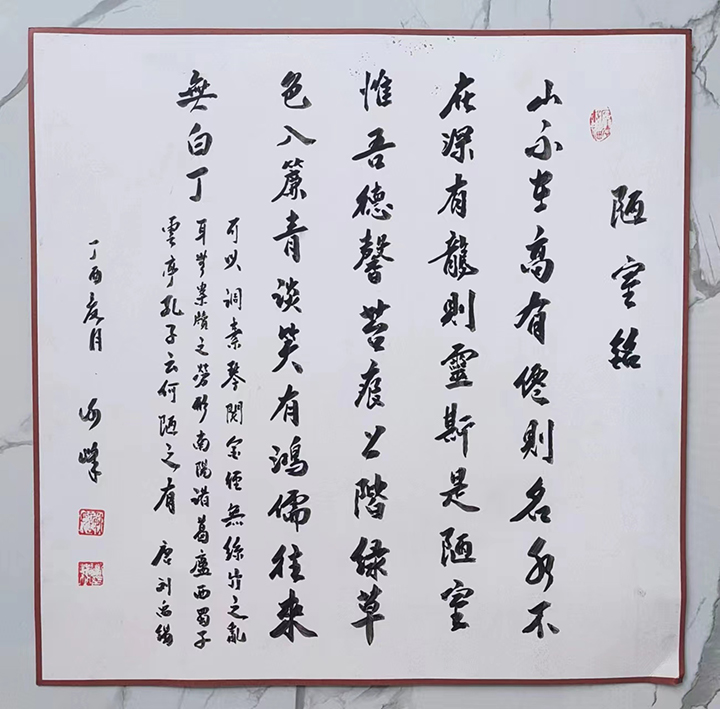 陋室銘
山不在高有僊則名水不
在深有龍則靈斯是陋室
惟吾德馨苔痕上階緑草
色入簾青談笑有鴻儒往來
無白丁
可以調素琴閱金經無絲竹之亂
耳無案牘之勞形南陽諸葛廬西蜀子
雲亭孔子云何陋之有 唐劉禹錫
丁酉夏月 峰